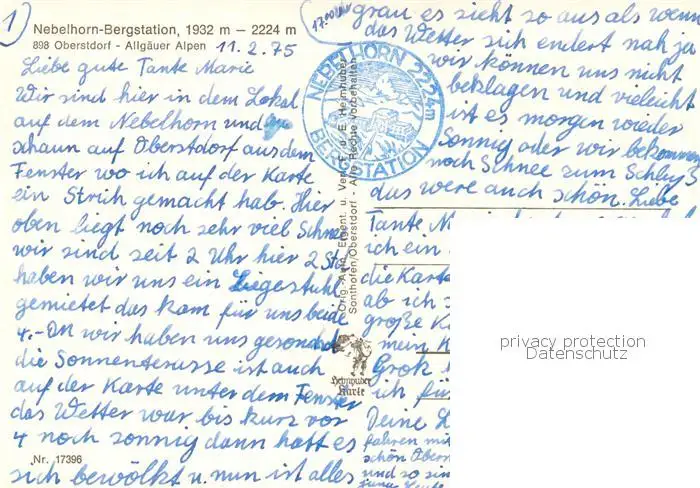 1)
Nebelhorn-Bergstation, 1932 m – 2224 m
898 Oberstdorf - Allgäuer Alpen 11.2.75
Liebe gute Tante Marie
Wir sind hier in dem Lokal
auf dem Nebelhorn und
schaun auf Oberstdorf aus dem
Fenster wo ich auf der Karte
ein Strich gemacht hab. Hier
oben liegt noch sehr viel Schnee
wir sind seit 2 Uhr hier 2 Std
haben wir uns ein Liegestuhl
gemietet das kam für uns beide
4.- DM wir haben uns gesonnd
die Sonnenterasse ist auch
auf der Karte unter dem Fenster
das Wetter war bis kurz vor
4 noch sonnig dann hatt es
sich bewölkt u. nun ist alles
Nr. 17396
NEBELHORN 2224m
BERGSTATION
Orig.-Aufn. Eigent. u. Verl. E. u. E. Heimhuber
Sonthofen/Oberstdorf - Alle Rechte vorbehalten
Heimhuber
Karte
17.00 Uhr
grau es sieht so aus als wenn
das Wetter sich endert nah ja
wir können uns nicht
beklagen und vieleicht
ist es morgen wieder
Sonnig oder wir bekommen
noch Schnee zum Schluß
das were auch schön. Liebe
Tante
ich ein
die Karte
ab ich
große
mein
Grok
ich für
Deine
fahren mit
schön Ober
und so sin
privacy protection
Datenschutz